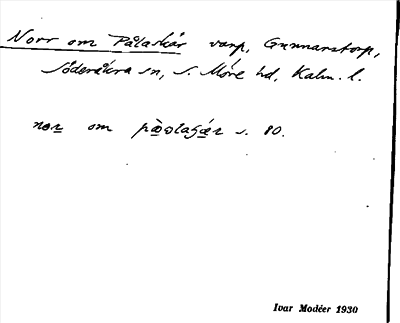 Norr om Pålaskär varp, Gunnarstorp,
Söderåkra sn, S. Möre hd, Kalm. l.
nor om s. 80.
Ivar Modéer 1930